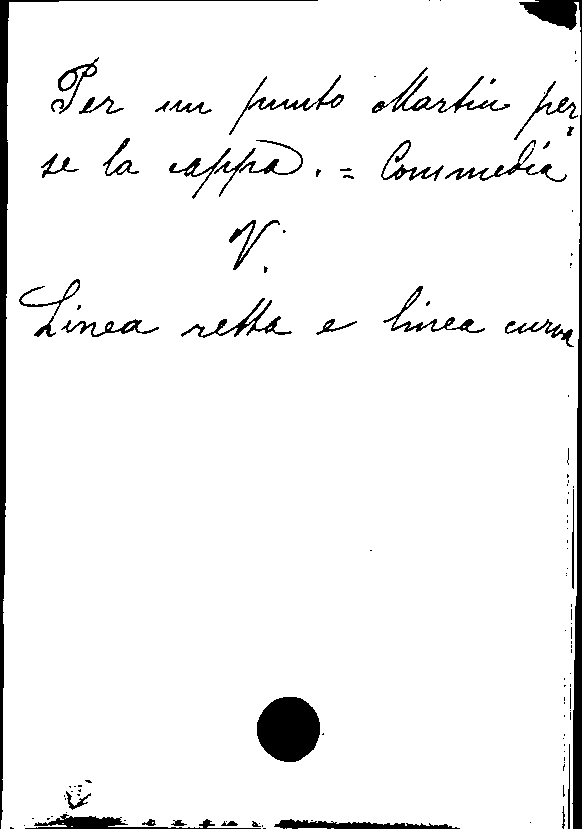 Per un punto Martin per
se la cappa. = Commedia
V.
Linea retta e linea curva